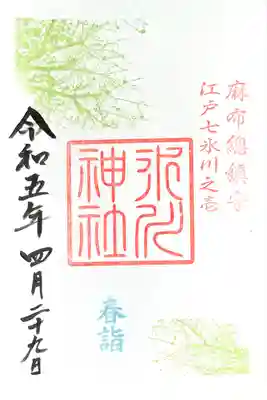 麻布總鎮守
江戸七氷川之壱
氷川神社
春詣
令和五年 四月二十九日